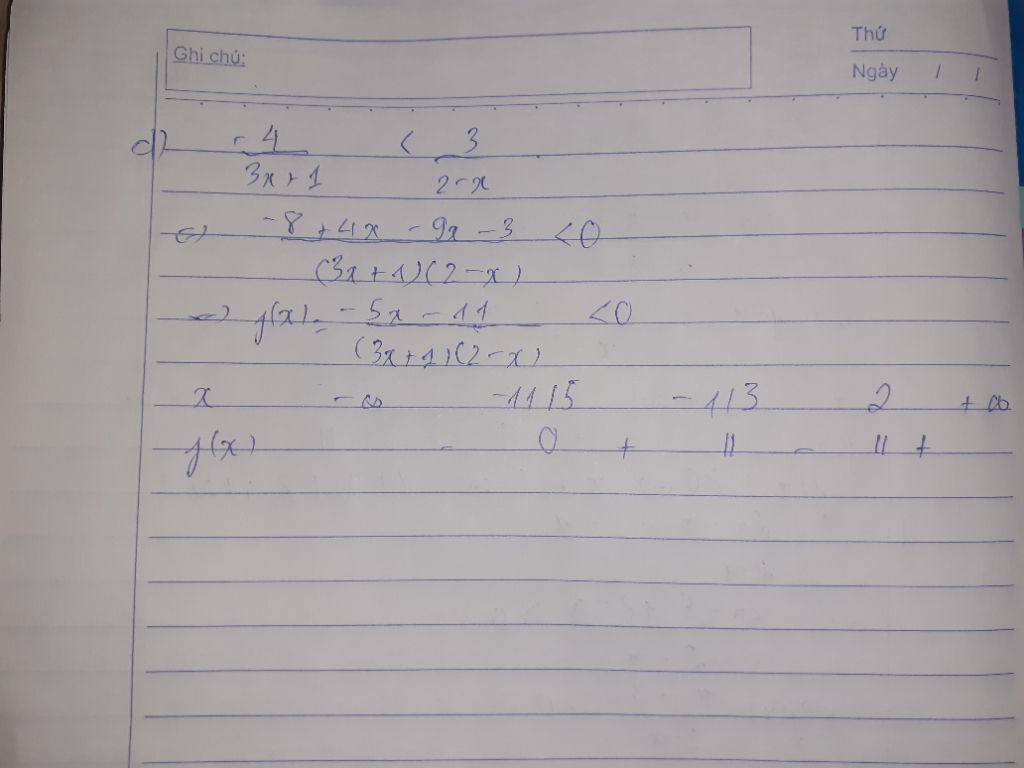 Thứ
Ghi chú:
Ngày / /
d) -4/(3x+1) < 3/(2-x)
<=> (-8+4x-9x-3)/((3x+1)(2-x)) <0
<=> f(x) = (-5x-11)/((3x+1)(2-x)) <0
x -∞ -11/5 -1/3 2 +∞
f(x) - 0 + || - || +